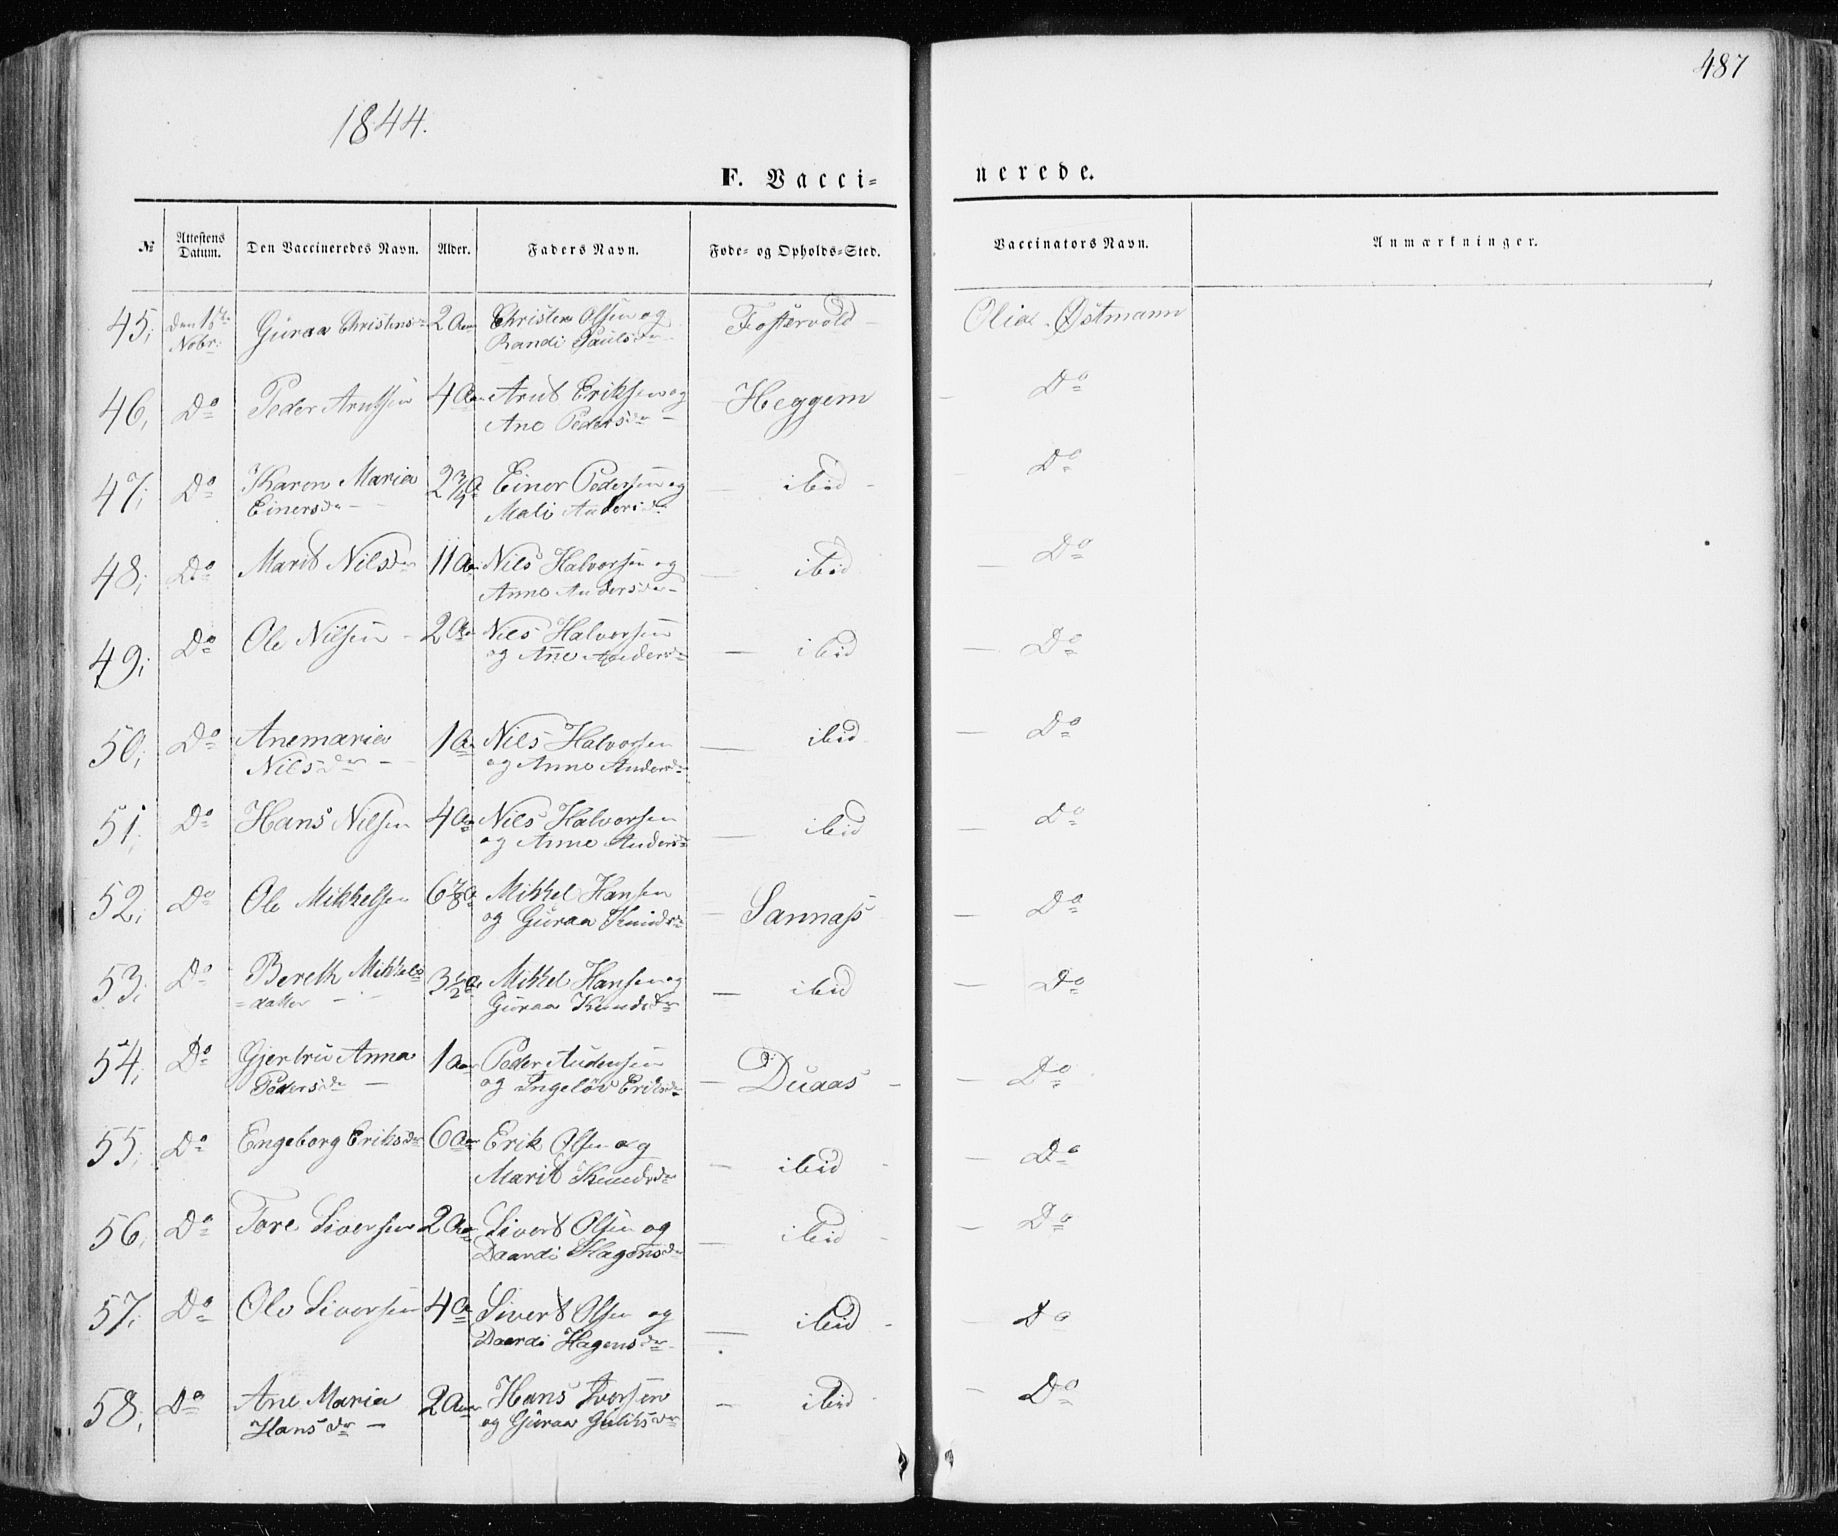 487
1844.
F. Vacci-nerede.
№ Attestens Datum. Den Vaccineredes Navn. Alder. Faders Navn. Føde- og Opholds-Sted. Vaccinators Navn. Anmærkninger.
45, den 1ste Guraa Christensdr 2 Aar Christen Olsen og Fostervold - Olia Østmann
Nobr. Randi Paulsdr
46, Do Peder Arntsen 4 Aar Arnt Eriksen og Heggem - Do
Ane Pedersdr -
47, Do Karen Maria Einor Pedersen og - ibid - - Do
Einersdr - - Mali Andersdr
48, Do Marit Nilsdr 11 Aar Nils Halvorsen og - ibid - Do
Anne Andersdr -
49, Do Ole Nilsen - 2 Aar Nils Halvorsen - ibid - Do
og Ane Andersdr
50, Do Anemaria 1 Aar Nils Halvorsen - ibid - Do
Nilsdr - og Anne Andersdr
51, Do Hans Nilsen 4 Aar Nils Halvorsen - ibid - Do
og Anne Andersdr
52, Do Ole Mikkelsen 6 7/8 A Mikkel Hansen - Sannass - Do
og Guraa Knudsdr
53, Do Bereth Mikkels 3 1/2 A Mikkel Hansen og - ibid - Do
=datter - - Guraa Knudsdr
54, Do Gjertru Anna 1 Aar Peder Andersen - Duaas - - Do
Pedersdr - og Ingeløv Eriksdr
55, Do Engeborg Eriksdr 6 Aar Erik Olsen og - ibid - - Do
Marit Knudsdr
56, Do Tore Siversen 2 Aar Sivert Olsen og - ibid - - Do
Daardi Hagensdr
57, Do Ole Siversen 4 A Sivert Olsen og - ibid - - Do
Daardi Hagensdr
58, Do Ane Maria 2 Aar Hans Iversen - ibid - Do
Hansdr - og Guraa Guliksdr